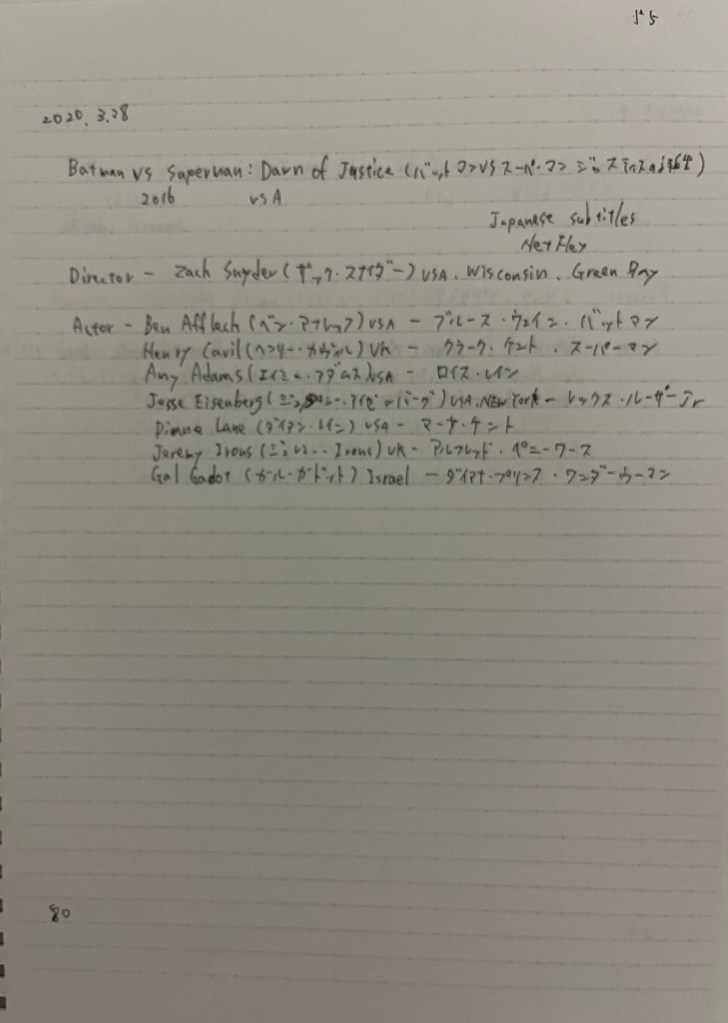 2020.3.28
Batman vs Superman: Dawn of Justice (バットマンVSスーパーマン ジャスティスの誕生)
2016 USA
Japanese subtitles
Netflex
Director - Zach Snyder (ザック・スナイダー) USA. Wisconsin. Green Bay
Actor - Ben Affleck (ベン・アフレック) USA - ブルース・ウェイン・バットマン
Henry Cavil (ヘンリー・カヴィル) UK - クラーク・ケント・スーパーマン
Amy Adams (エイミー・アダムス) USA - ロイス・レイン
Jesse Eisenberg (ジェシー・アイゼンバーグ) USA. NEW York - レックス・ルーサーJr
Diane Lane (ダイアン・レイン) USA - マーサ・ケント
Jeremy Irons (ジェレミー・Irons) UK - アルフレッド・ペニーワース
Gal Gadot (ガル・ガドット) Israel - ダイアナ・プリンス・ワンダーウーマン
80